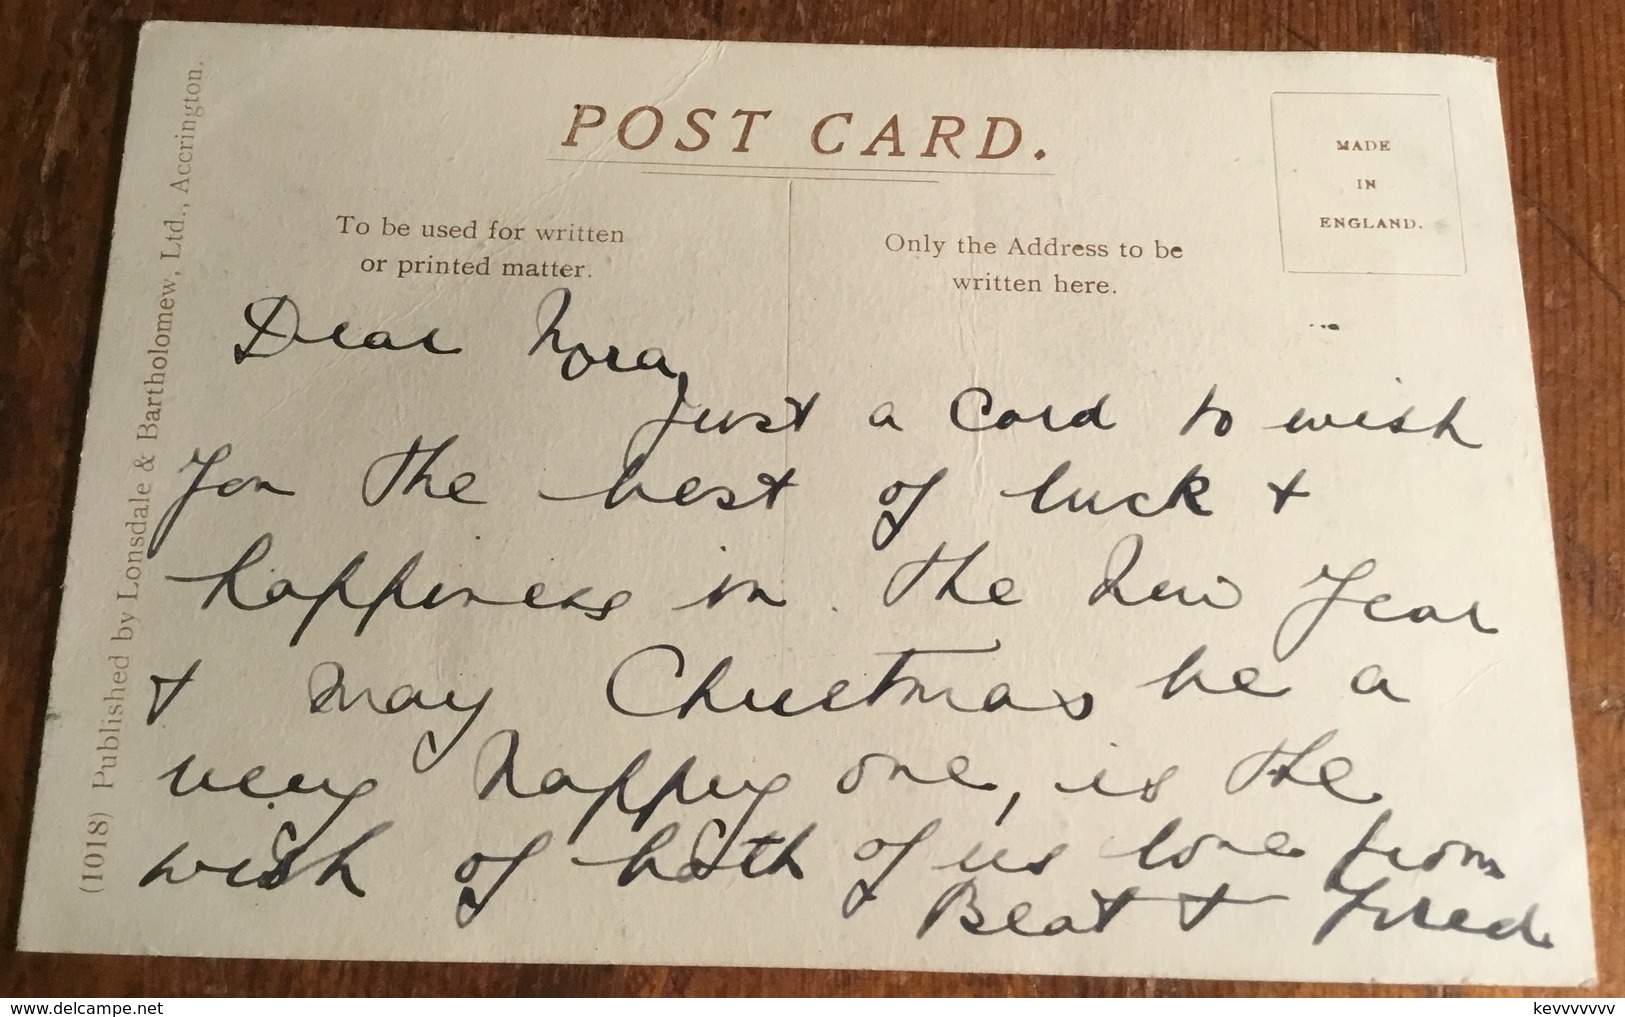 POST CARD.
MADE
IN
ENGLAND.
To be used for written
or printed matter.
Only the Address to be
written here.
(1018) Published by Lonsdale & Bartholomew, Ltd., Accrington.
Dear Nora,
just a card to wish
you the best of luck +
happiness in the New Year
+ may Christmas be a
very happy one, is the
wish of both of us love from
Beat + Fred.
www.delcampe.net
kevvvvvvv